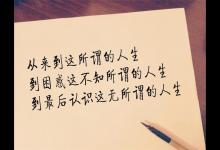 从来到这所谓的人生
到困惑这不知所谓的人生
到最后认识这无所谓的人生